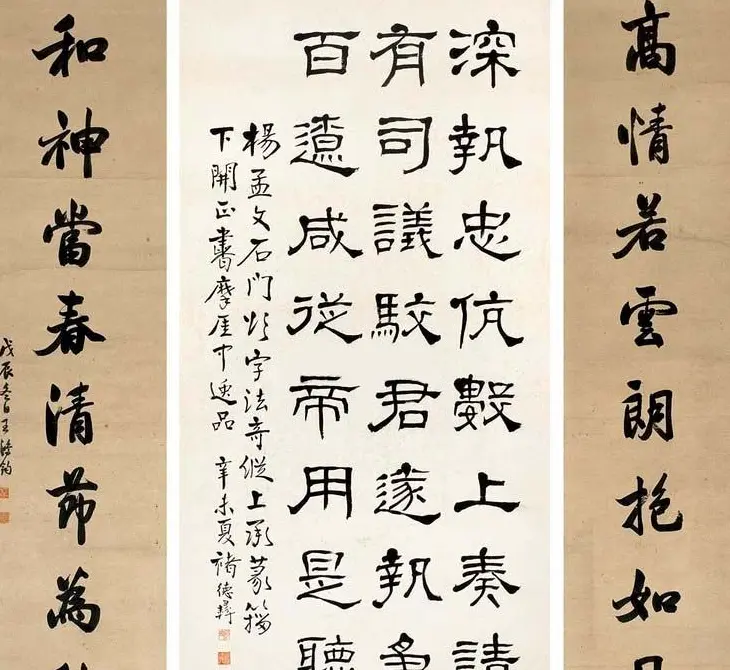 高情若雲朗抱如
深執忠伉數上奏請
有司議駮君遂執爭
百遼咸從帝用是聽
楊孟文石門頌字法奇縱上承篆籀
下開正書摩厓中逸品 辛未夏褚德彝
和神當春清節為
戊辰冬日王